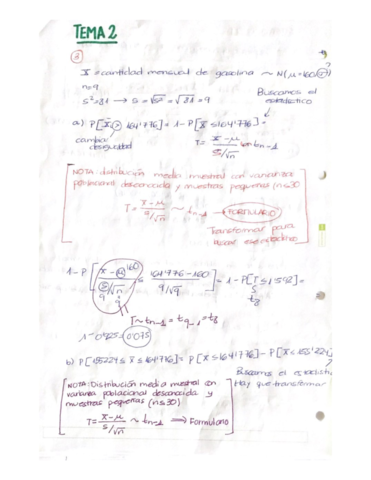 TEMA 2
X = cantidad mensual de gasolina ~ N(μ=160,
n=9
s²=81 → s = √s² = √81 = 9
Buscamos el estadístico
a) P[x̄ > 164'776] = 1 - P[x̄ ≤ 164'776] =
cambiar desigualdad
T = x̄-μ / s/√n ~ tn-1
NOTA: distribución media muestral con varianza
poblacional desconocida y muestras pequeñas (n≤30
T = x̄-μ / s/√n ~ tn-1 → FORMULARIO
Transformar para
1-P [ x̄-μ / s/√n ≤ 164'776-160 / 9/√9 ] = 1-P[T ≤ 1'592] =
160
9
9
t8
T ~ tn-1 = t9-1 = t8
1-0'925 = 0'075
b) P[155'224 ≤ x̄ ≤ 164'776] = P[x̄ ≤ 164'776] - P[x̄ ≤ 155'224
Buscamos el
Hay que transformar
NOTA: Distribución media muestral con
varianza poblacional desconocida y
muestras pequeñas (n≤30)
T = x̄-μ / s/√n ~ tn-1 → Formulario